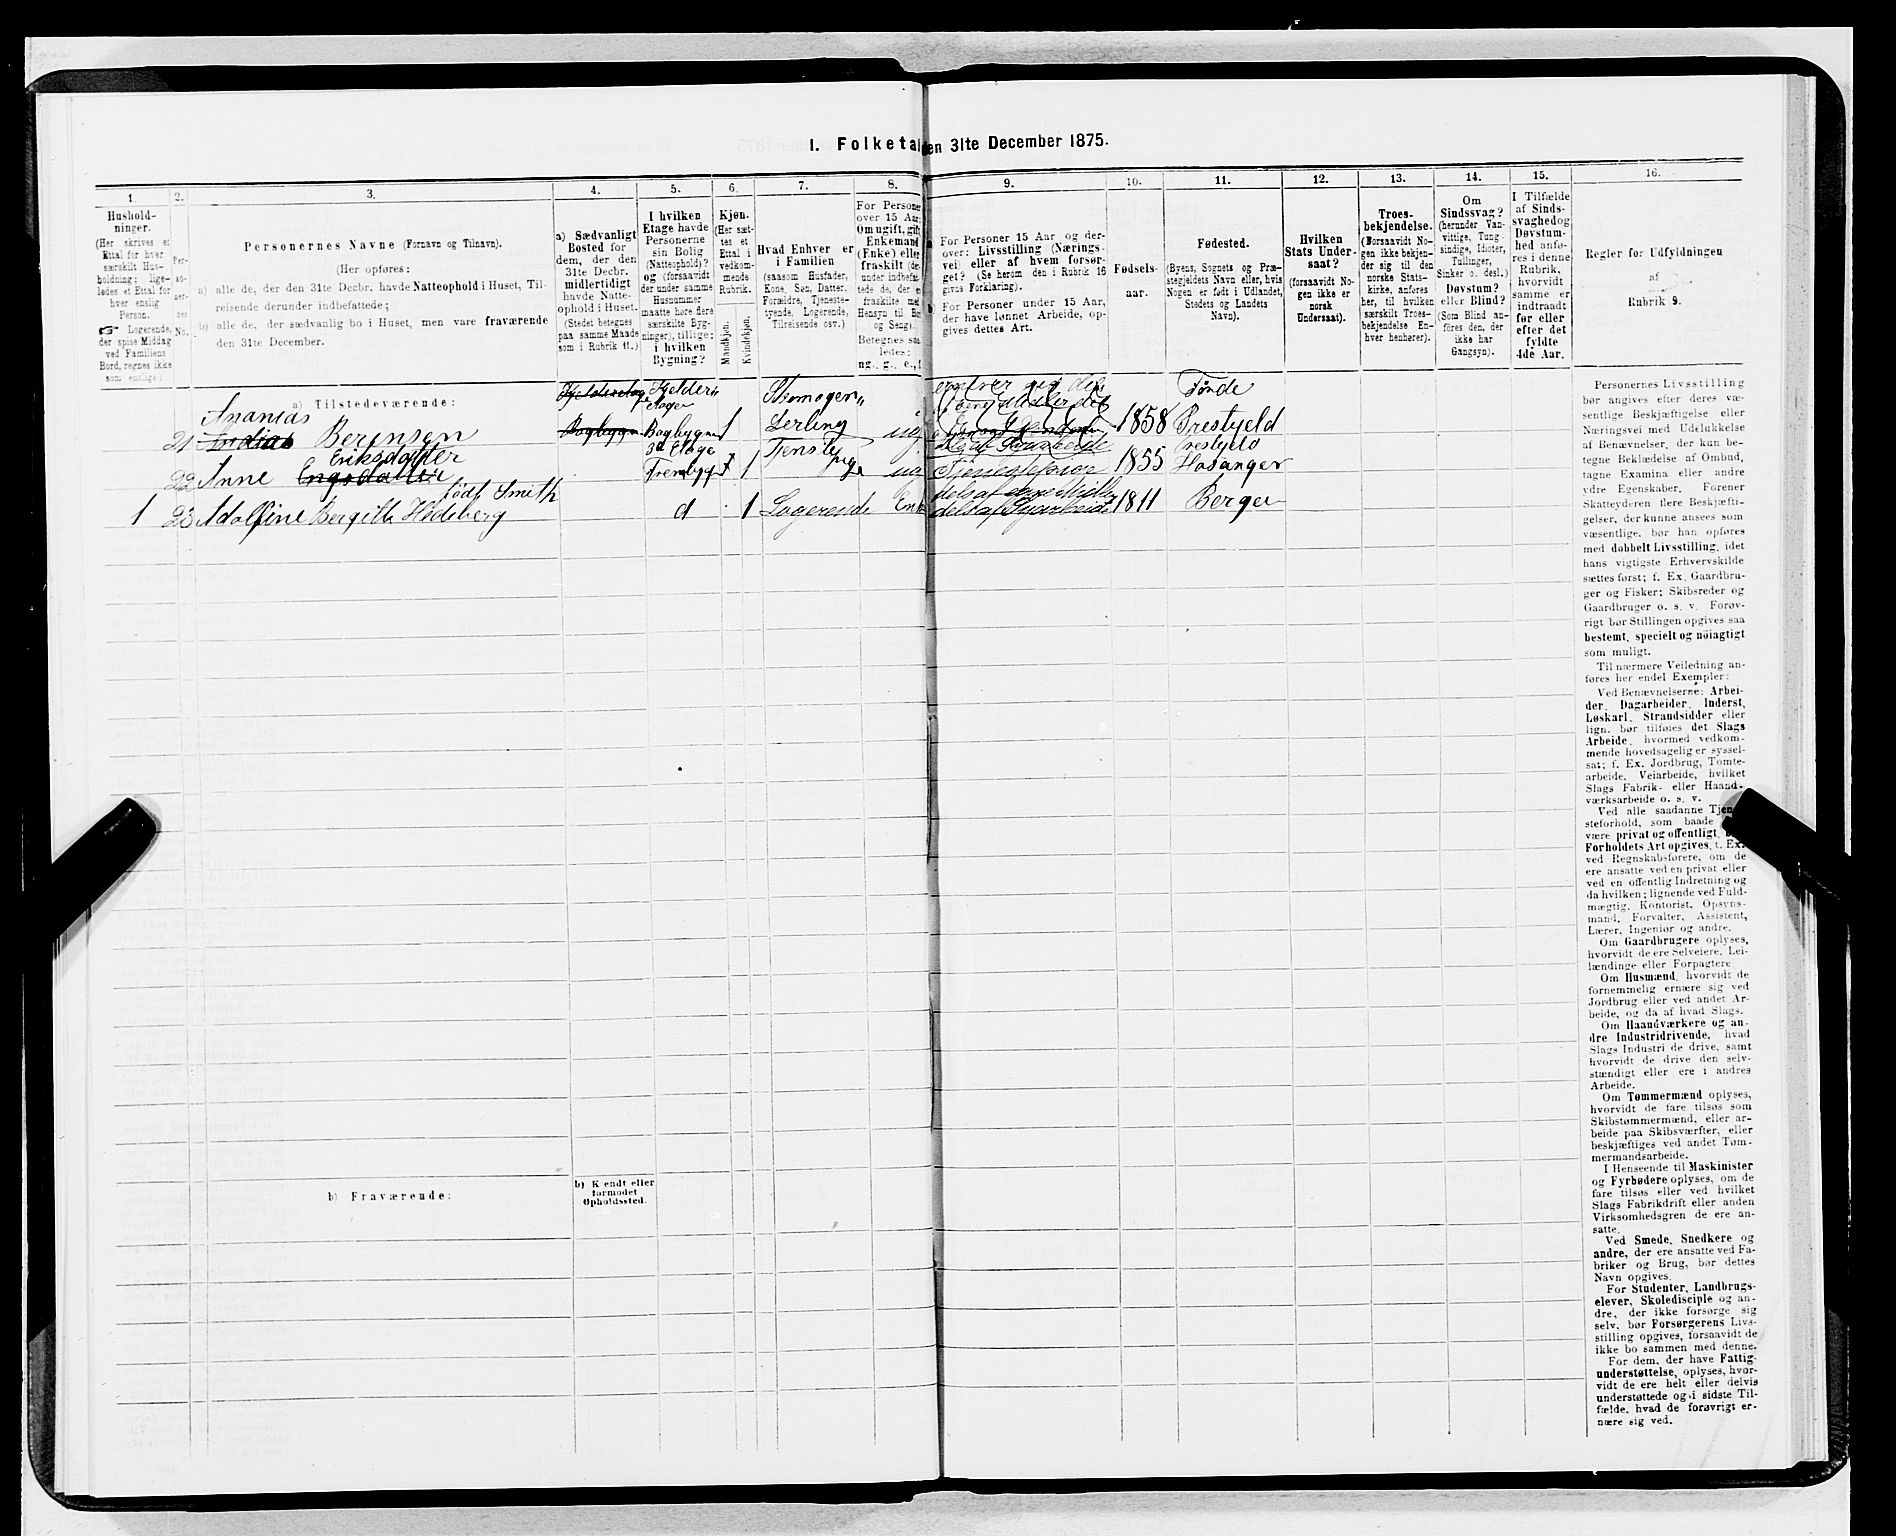 I. Folketal
en 31te December 1875.
1.
2.
3.
4.
5.
6.
7.
8.
9.
10.
11.
12.
13.
14.
15.
16.
Hushold-
ninger.
(Her skrives et
Ettal for hver
særskilt Hus-
holdning; lige-
ledes et Ettal for
hver enslig
Person.
☞ Logerende,
der spise Middag
ved Familiens
Bord, regnes ikke
som enslige.)
Per-
so-
ner-
nes
No.
Personernes Navne (Fornavn og Tilnavn).
(Her opføres:
a) alle de, der den 31te Decbr. havde Natteophold i Huset, Til-
reisende derunder indbefattede;
b) alle de, der sædvanlig bo i Huset, men vare fraværende
den 31te December.
a) Sædvanligt
Bosted for
dem, der den
31te Decbr.
midlertidigt
havde Natte-
ophold i Huset.
(Stedet betegnes
paa samme Maade
som i Rubrik 11.)
I hvilken
Etage havde
Personerne
sin Bolig
(Natteophold)?
og (forsaavidt
der under samme
Husnummer
maatte høre flere
særskilte Byg-
ninger), tillige:
i hvilken
Bygning?
Kjøn.
(Her sæt-
tes et
Ettal i
vedkom-
mende
Rubrik.
Mandkjøn.
Kvindekjøn.
Hvad Enhver er
i Familien
(saasom Husfader,
Kone, Søn, Datter,
Forældre, Tjeneste-
tyende, Logerende,
Tilreisende osv.)
For Personer
over 15 Aar:
Om ugift, gift
Enkemand
(Enke) eller
fraskilt (der-
under indbefat-
tede de, der er
fraskilte med
Hensyn til Bo
og Seng).
Betegnes saa
ledes:
ug., g., e., f
a) For Personer 15 Aar og der-
over: Livsstilling (Nærings-
vei) eller af hvem forsør-
get? (Se herom den i Rubrik 16
givne Forklaring).
b) For Personer under 15 Aar,
der have lønnet Arbeide, op-
gives dettes Art.
Fødsels-
aar.
Fødested.
(Byens, Sognets og Præ-
stegjeldets Navn eller, hvis
Nogen er født i Udlandet,
Stedets og Landets
Navn).
Hvilken
Stats Under-
saat?
(forsaavidt No-
gen ikke er
norsk
Undersaat).
Troes-
bekjendelse.
(Forsaavidt No-
gen ikke bekjen-
der sig til den
norske Stats-
kirke, anføres
her, til hvilken
særskilt Troes-
bekjendelse En-
hver henhører).
Om
Sindssvag?
(herunder Van-
vittige, Tung-
sindige, Idioter,
Tullinger,
Sinker o. desl.)
Døvstum?
eller Blind?
(Som Blind an-
føres den, der
ikke har
Gangsyn).
I Tilfælde
af Sinds-
svaghed og
Døvstum-
hed anfø-
res i denne
Rubrik,
hvorvidt
samme er
indtraadt
før eller
efter det
fyldte
4de Aar.
Regler for Udfyldningen
af
Rubrik 9.
a) Tilstedeværende:
Ananias
21 Berensen
Kjelder
Etage
Bagbygn
1
Skomager
Lerling
ug
1858
Tønde
Prestgjeld
22 Anne Eriksdatter
3d Etage
1
Tjenste
pige
ug
Tjenestepige
1855
Hosanger
Prestgjeld
1 23 Adolfine Bergitte Hedeberg
født Smith
d
1
Logerende
Enke
1811
Bergen
b) Fraværende:
b) Kjendt eller
formodet
Opholdssted.
Personernes Livsstilling
bør angives efter deres væ-
sentlige Beskjæftigelse eller
Næringsvei med Udelukkelse
af Benævnelser, der kun be-
tegne Beklædelse af Ombud,
tagne Examina eller andre
ydre Egenskaber. Forener
Skatteyderen flere Beskjæfti-
gelser, der kunne ansees som
væsentlige, bør han opføres
med dobbelt Livsstilling, idet
hans vigtigste Erhvervskilde
sættes først; f. Ex. Gaardbru-
ger og Fisker; Skibsreder og
Gaardbruger o. s. v. Forøv-
rigt bør Stillingen opgives saa
bestemt, specielt og nøiagtigt
som muligt.
Til nærmere Veiledning an-
føres her endel Exempler:
Ved Benævnelserne: Arbei-
der, Dagarbeider, Inderst,
Løskarl, Strandsidder eller
lign. bør tilføies det Slags
Arbeide, hvormed vedkom-
mende hovedsagelig er syssel-
sat; f. Ex. Jordbrug, Tomte-
arbeide, Veiarbeide, hvilket
Slags Fabrik- eller Haand-
værksarbeide o. s. v.
Ved alle saadanne Tjene-
steforhold, som baade
være privat og offentligt,
Forholdets Art opgives, f. Ex.
ved Regnskabsførere, om de
ere ansatte ved en privat eller
ved en offentlig Indretning og
da hvilken; lignende ved Fuld-
mægtig, Kontorist, Opsyns-
mand, Forvalter, Assistent,
Lærer, Ingeniør og andre.
Om Gaardbrugere oplyses,
hvorvidt de ere Selveiere, Lei-
lændinge eller Forpagtere
Om Husmænd, hvorvidt de
fornemmelig ernære sig ved
Jordbrug eller ved andet Ar-
beide, og da af hvad Slags.
Om Haandværkere og an-
dre Industridrivende, hvad
Slags Industri de drive, samt
hvorvidt de drive den selv-
stændigt eller ere i andres
Arbeide.
Om Tømmermænd oplyses,
hvorvidt de fare tilsøs som
Skibstømmermænd, eller ar-
beide paa Skibsværfter, eller
beskjæftiges ved andet Tøm-
mermandsarbeide.
I Henseende til Maskinister
og Fyrbødere oplyses, om de
fare tilsøs eller ved hvilket
Slags Fabrikdrift eller anden
Virksomhedsgren de ere an-
satte.
Ved Smede, Snedkere og
andre, der ere ansatte ved Fa-
briker og Brug, bør dettes
Navn opgives.
For Studenter, Landbrugs-
elever, Skoledisciple og an-
dre, der ikke forsørge sig
selv, bør Forsørgerens Livs-
stilling opgives, forsaavidt de
ikke bo sammen med denne.
For dem, der have Fattig-
understøttelse, oplyses, hvor-
vidt de ere helt eller delvis
understøttede og i sidste Til-
fælde, hvad de forøvrigt er-
nære sig ved.